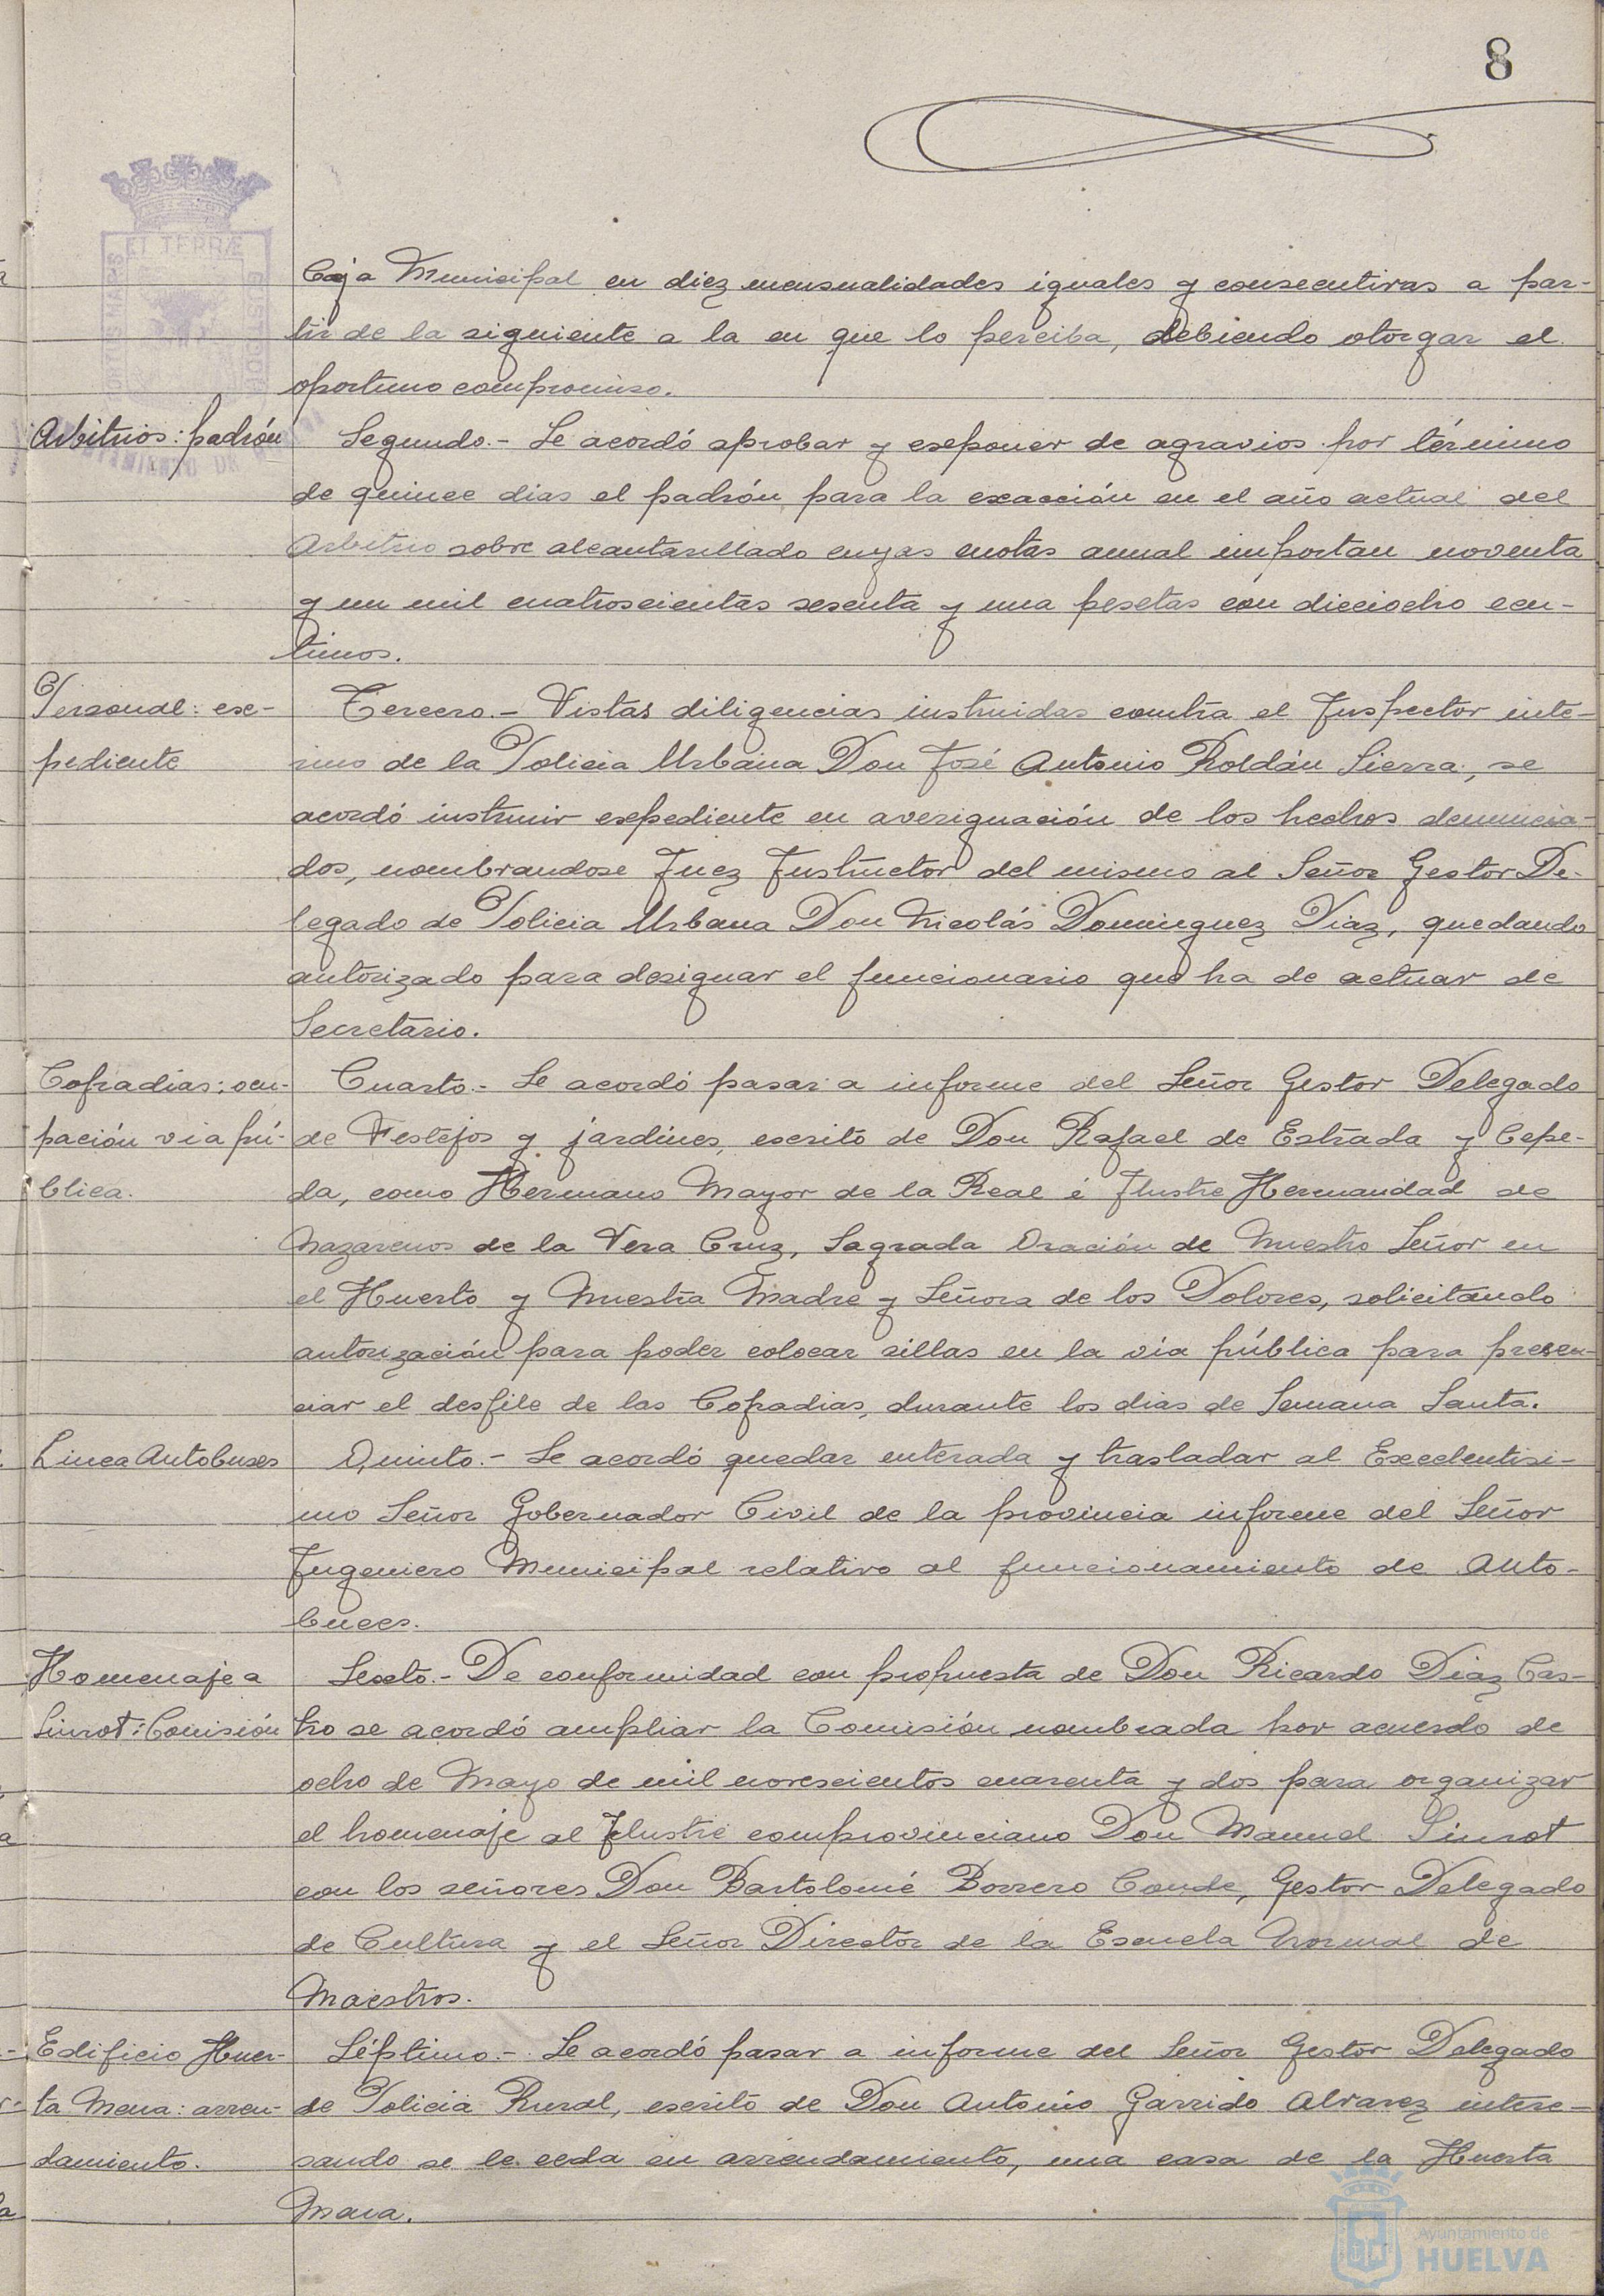 8
Caja Municipal en diez mensualidades iguales y consecutivas a par-
tir de la siguiente a la en que lo perciba, debiendo otorgar el
oportuno compromiso.
Arbitrios: padrón
Segundo.- Se acordó aprobar y exponer de agravios por término
de quince dias el padrón para la exacción en el año actual del
Arbitrio sobre alcantarillado cuyas cuotas anual importan noventa
y un mil cuatroscientas sesenta y una pesetas con dieciocho cen-
timos.
Personal: ex-
pediente
Tercero.- Vistas diligencias instruidas contra el Inspector inte-
rino de la Policia Urbana Don José Antonio Roldán Sierra, se
acordó instruir expediente en averiguación de los hechos denuncia-
dos, nombrandose Juez Instructor del mismo al Señor Gestor De-
legado de Policia Urbana Don Nicolás Dominguez Diaz, quedando
autorizado para designar el funcionario que ha de actuar de
Secretario.
Cofradias; ocu-
pación via pú-
blica.
Cuarto.- Se acordó pasar a informe del Señor Gestor Delegado
de Festejos y jardines, escrito de Don Rafael de Estrada y Cepe-
da, como Hermano Mayor de la Real é Ilustre Hermandad de
Nazarenos de la Vera Cruz, Sagrada Oración de Nuestro Señor en
el Huerto y Nuestra Madre y Señora de los Dolores, solicitando
autorización para poder colocar sillas en la via pública para presen-
ciar el desfile de las Cofradias, durante los dias de Semana Santa.
Linea Autobuses
Quinto.- Se acordó quedar enterada y trasladar al Excelentisi-
mo Señor Gobernador Civil de la provincia informe del Señor
Ingeniero Municipal relativo al funcionamiento de Auto-
buces.
Homenaje a
Siurot: Comisión
Sexto.- De conformidad con propuesta de Don Ricardo Diaz Cas-
tro se acordó ampliar la Comisión nombrada por acuerdo de
ocho de Mayo de mil novescientos cuarenta y dos para organizar
el homenaje al Ilustre comprovinciano Don Manuel Siurot
con los señores Don Bartolomé Borrero Conde, Gestor Delegado
de Cultura y el Señor Director de la Escuela Normal de
Maestros.
Edificio Huer-
ta Mena: arren-
damiento.
Séptimo.- Se acordó pasar a informe del Señor Gestor Delegado
de Policia Rural, escrito de Don Antonio Garrido Alvarez intere-
sando se le ceda en arrendamiento, una casa de la Huerta
Mena.
Ayuntamiento de
HUELVA